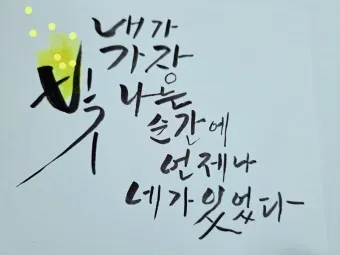 내가
가장
빛나는
순간에
언제나
네가 있었다